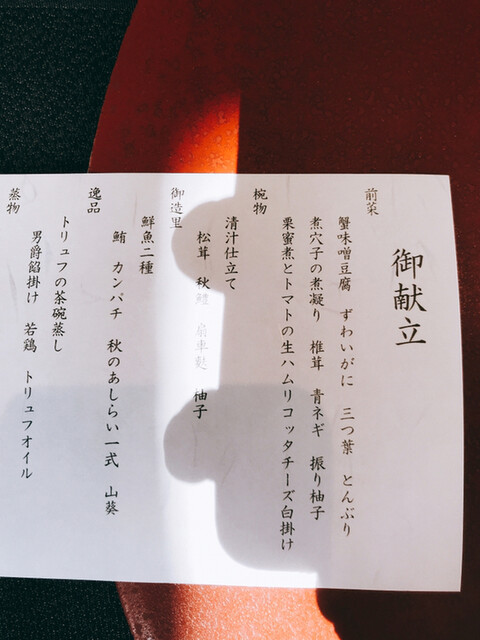 御献立
前菜
蟹味噌豆腐 ずわいがに 三つ葉 とんぶり
煮穴子の煮凝り 椎茸 青ネギ 振り柚子
栗蜜煮とトマトの生ハムリコッタチーズ白掛け
椀物
清汁仕立て
松茸 秋鱧 扇車麩 柚子
御造里
鮮魚二種
鮪 カンパチ 秋のあしらい一式 山葵
逸品
トリュフの茶碗蒸し
男爵餡掛け 若鶏 トリュフオイル
蒸物